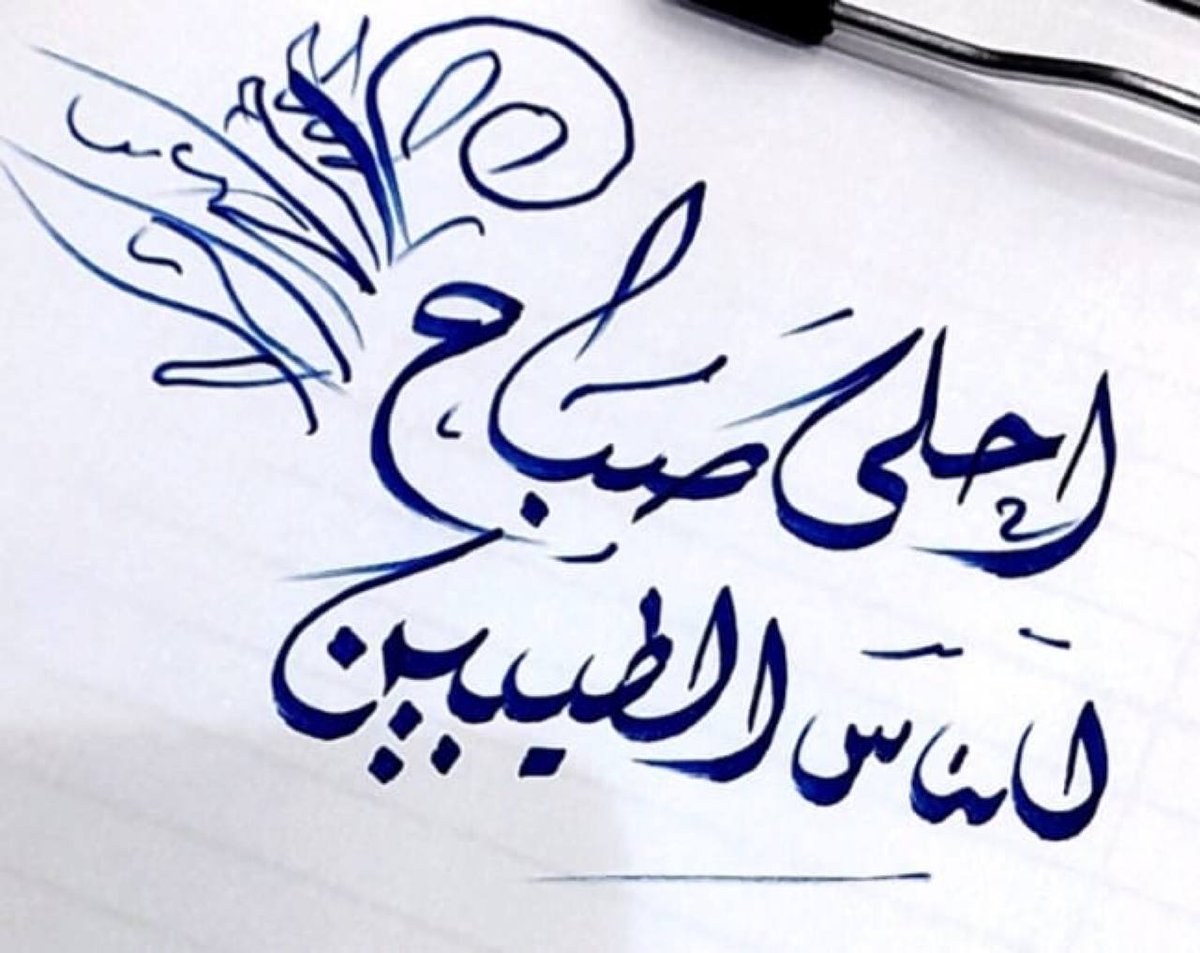 احلى صباح
للناس الطيبين